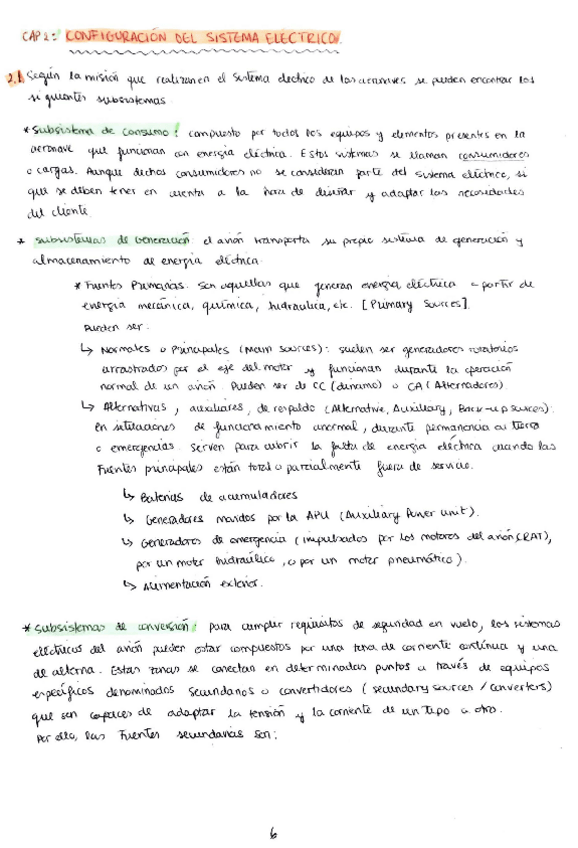 CAP 2: CONFIGURACIÓN DEL SISTEMA ELÉCTRICO.
2.1 Según la misión que realizan en el sistema eléctrico de las aeronaves, se pueden encontrar los
siguientes subsistemas
* Subsistema de consumo: compuesto por todos los equipos y elementos presentes en la
aeronave que funcionan con energía eléctrica. Estos sistemas se llaman consumidores
o cargas. Aunque dichos consumidores no se consideran parte del sistema eléctrico, si
que se deben tener en cuenta a la hora de diseñar y adaptar las necesidades
del cliente.
* Subsistemas de Generación: el avión transporta su propio sistema de generación y
almacenamiento de energía eléctrica.
* Fuentes Primarias. Son aquellas que generan energía eléctrica a partir de
energía mecánica, química, hidraulica, etc. [Primary Sources].
Pueden ser:
↳ Normales o Principales (Main sources): suelen ser generadores rotatorios
arrastrados por el eje del motor y funcionan durante la operación
normal de un avión. Pueden ser de CC (dinamo) o CA (Alternadores).
↳ Alternativas, auxiliares, de respaldo (Alternative, Auxiliary, Back-up sources):
en situaciones de funcionamiento anormal, durante permanencia en tierra
o emergencias. Sirven para cubrir la falta de energía eléctrica cuando las
Fuentes principales están total o parcialmente fuera de servicio.
↳ Baterías de acumuladores
↳ Generadores movidos por la APU (Auxiliary Power Unit).
↳ Generadores de emergencia (impulsados por los motores del avión, (RAT),
por un motor hidraúlico, o por un motor pneumático).
↳ Alimentación exterior.
* Subsistemas de conversión: para cumplir requisitos de seguridad en vuelo, los sistemas
eléctricos del avión pueden estar compuestos por una zona de corriente continua y una
de alterna. Estas zonas se conectan en determinados puntos a través de equipos
específicos denominados Secundarios o convertidores (secundary sources / converters)
que son capaces de adaptar la tensión y la corriente de un tipo a otro.
Por ello, las Fuentes secundarias son:
6